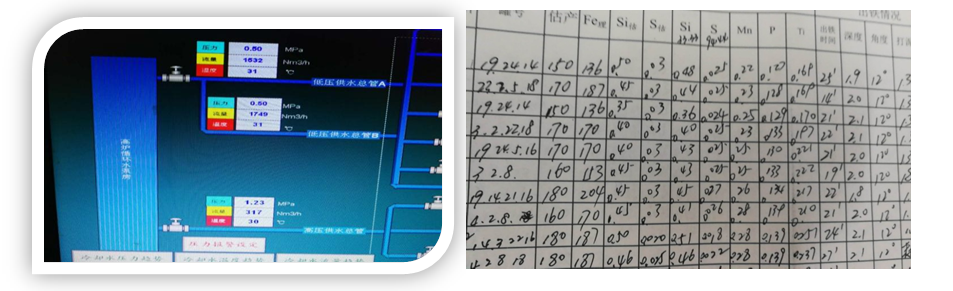 压力 0.50 MPa
流量 1632 Nm3/h
温度 31 ℃
低压供水总管A
压力 0.50 MPa
流量 1749 Nm3/h
温度 31 ℃
低压供水总管B
高炉循环水泵房
压力 1.23 MPa
流量 317 Nm3/h
温度 30 ℃
高压供水总管
压力报警设定
冷却水压力趋势 冷却水温度趋势 冷却水流量趋势
罐号 估产 Fe理 Si估 S估 Si S Mn P Ti 出铁时间 深度 角度
出铁情况
19.24.14 150 136 0.50 0.03 0.48 0.025 0.22 0.120 0.168 23' 1.9 12°
170 187 0.45 0.03 0.44 0.025 0.23 0.128 14' 2.0 12°
19.24.14 150 136 0.35 0.03 0.36 0.024 0.25 0.129 0.170 21' 2.1 12°
3.2.22.18 170 170 0.40 0.03 0.40 0.025 23 0.133 22' 2.1 12°
19.24.5.16 170 170 0.40 0.03 0.43 0.130 0.221 21' 2.0 12°
3.2.8. 160 113 0.45 0.03 0.43 0.25 0.133 0.222 19' 2.0 12°
19.14.21.16 180 204 0.45 0.03 0.45 0.027 26 0.134 217 22' 1.8 12°
2.8. 160 170 0.45 0.03 0.41 0.026 28 0.134 210 21' 2.0 12°
14.3.22.16 180 187 0.50 0.020 0.51 0.018 0.28 0.137 0.257 24' 2.1 12°
4.2.8.18 180 187 0.46 0.025 0.46 0.022 0.28 0.139 0.237 27' 2.1 12°